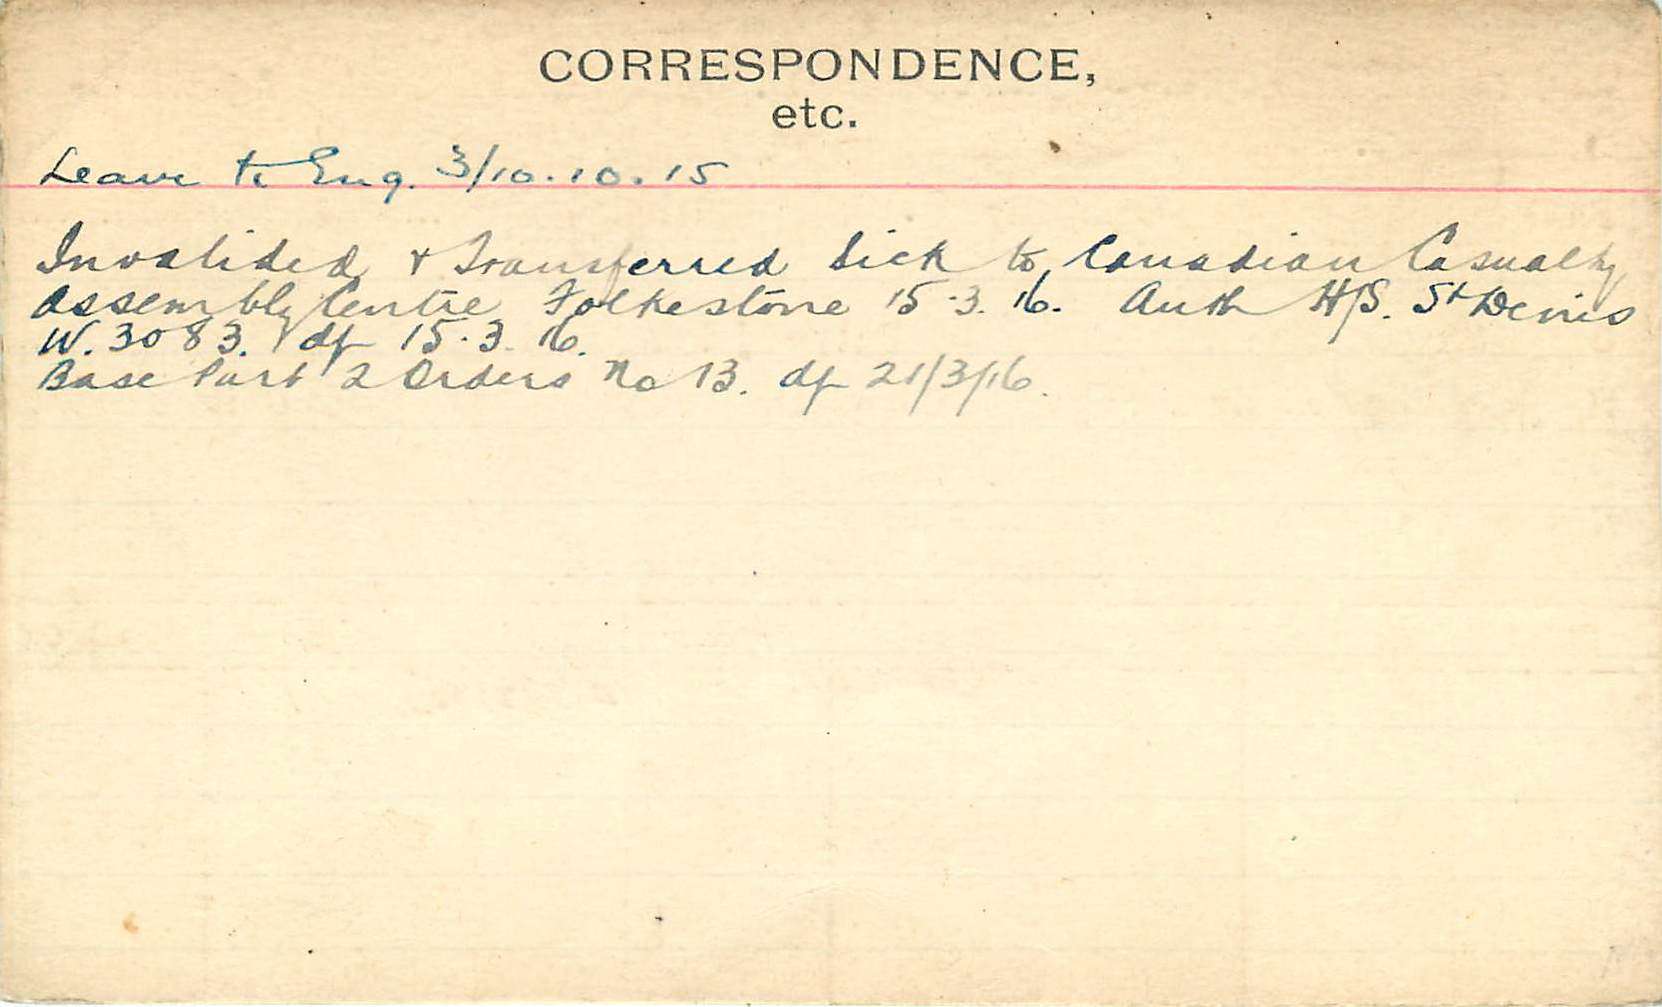 CORRESPONDENCE,
etc.
Leave to Eng. 3/10.10.15
Invalided & Transferred Sick to Canadian Casualty
Assembly Centre Folkestone 15.3.16. Auth H/S. St Denis
W.3083. df 15.3.16.
Base Part 2 Orders No 13. df 21/3/16.